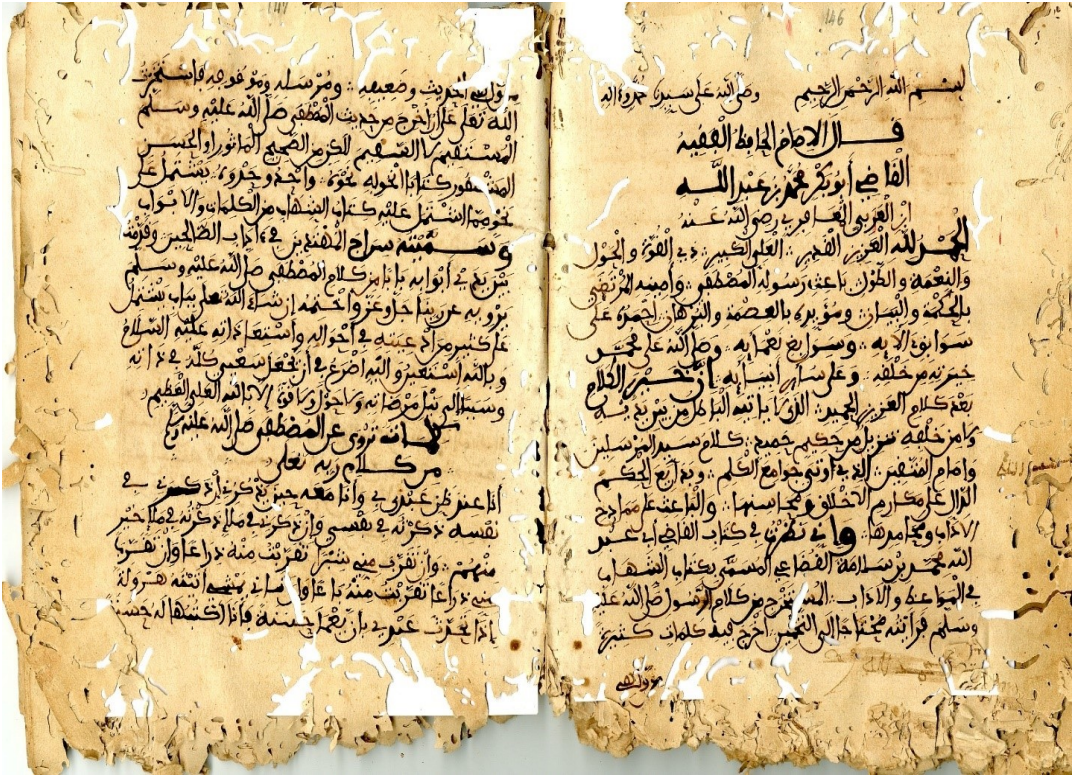 بسم الله الرحمن الرحيم وصلى الله على سيدنا محمد وءاله
قال الامام الحافظ الفقيه
القاضي أبو بكر محمد بن عبد الله
ابن العربي المعافري رضي الله عنه
الحمد لله العزيز القدير العلي الكبير ذي القوة والحول
والنعمة والطول باعث رسوله المصطفى وأمينه المرتضى
بالحكمة والبيان ومؤيده بالعصمة والبرهان احمده على
سوابق ءالايه وسوابغ نعمايه وصلى الله على محمد
خيرته من خلقه وعلى ساير أنبيايه أن خير الكلام
بعد كلام العزيز الحميد الذي لا ياتيه الباطل من بين يديه
ولا من خلفه تنزيل من حكيم حميد كلام سيد المرسلين
وامام المتقين الذي اوتي جوامع الكلم وبدايع الحكم
الدال على مكارم الاخلاق ومحاسنها والباعث على ممادح
الاداب ومحامدها واني نظرت في كتاب القاضي ابي عبد
الله محمد بن سلامة القضاعي المسمى بكتاب الشهاب
في المواعظ والاداب المستخرج من كلام الرسول صلى الله عليه
وسلم فرأيته محتاجا الى التمييز اخرج فيه كلمات كثيرة
الحديث وضعيفه ومرسله وموقوفه فاستخرت
الله تعلى على ان اخرج من حديث المصطفى صلى الله عليه وسلم
المستقيم لا السقيم للكم من الصحيح الماثور او الحسن
المشهور كتابا انحو له نحوه واحذو حذوه يشتمل على
نحو ما اشتمل عليه كتاب الشهاب من الكلمات والابواب
وسميته سراج المهتدين في ءاداب الصالحين وقدمت
بين يدي أبوابه بابا من كلام المصطفى صلى الله عليه وسلم
يرويه عن ربنا جل وعز واختمه إن شاء الله تعلى بباب يشتمل
على كثير من ادعيته في أحواله واستعاذاته عليه السلام
وبالله استعين واليه اضرع في أن يجعل سعيي كله في ذاته
وسيلة الى نيل مرضاته ولا حول ولا قوة الا بالله العلي العظيم
كلماته تروى عن المصطفى صلى الله عليه وسلم
من كلام ربه تعلى
أنا عند ظن عبدي بي وانا معه حين يذكرني إن ذكرني في
نفسه ذكرته في نفسي وان ذكرني في ملإ ذكرته في ملإ خير
منهم وان تقرب مني شبرا تقربت منه ذراعا وان تقرب
مني ذراعا تقربت منه باعا وان اتاني يمشي أتيته هرولة
إذا تحدث عبدي بان يعمل حسنة فانا اكتبها له حسنة